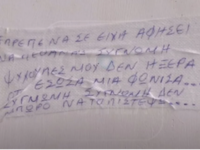 ΕΠΡΕΠΕ ΝΑ ΣΕ ΕΙΧΑ ΑΦΗΣΕΙ
ΣΥΓΝΩΜΗ
ΨΥΧΟΥΛΕΣ ΜΟΥ ΔΕΝ ΗΞΕΡΑ
ΕΣΩΣΑ ΜΙΑ ΦΩΝΙΣΑ...
ΣΥΓΝΩΜΗ ΣΥΓΝΩΜΗ ΔΕΝ
ΜΠΟΡΩ ΝΑ ΤΟ ΠΙΣΤΕΨΩ...